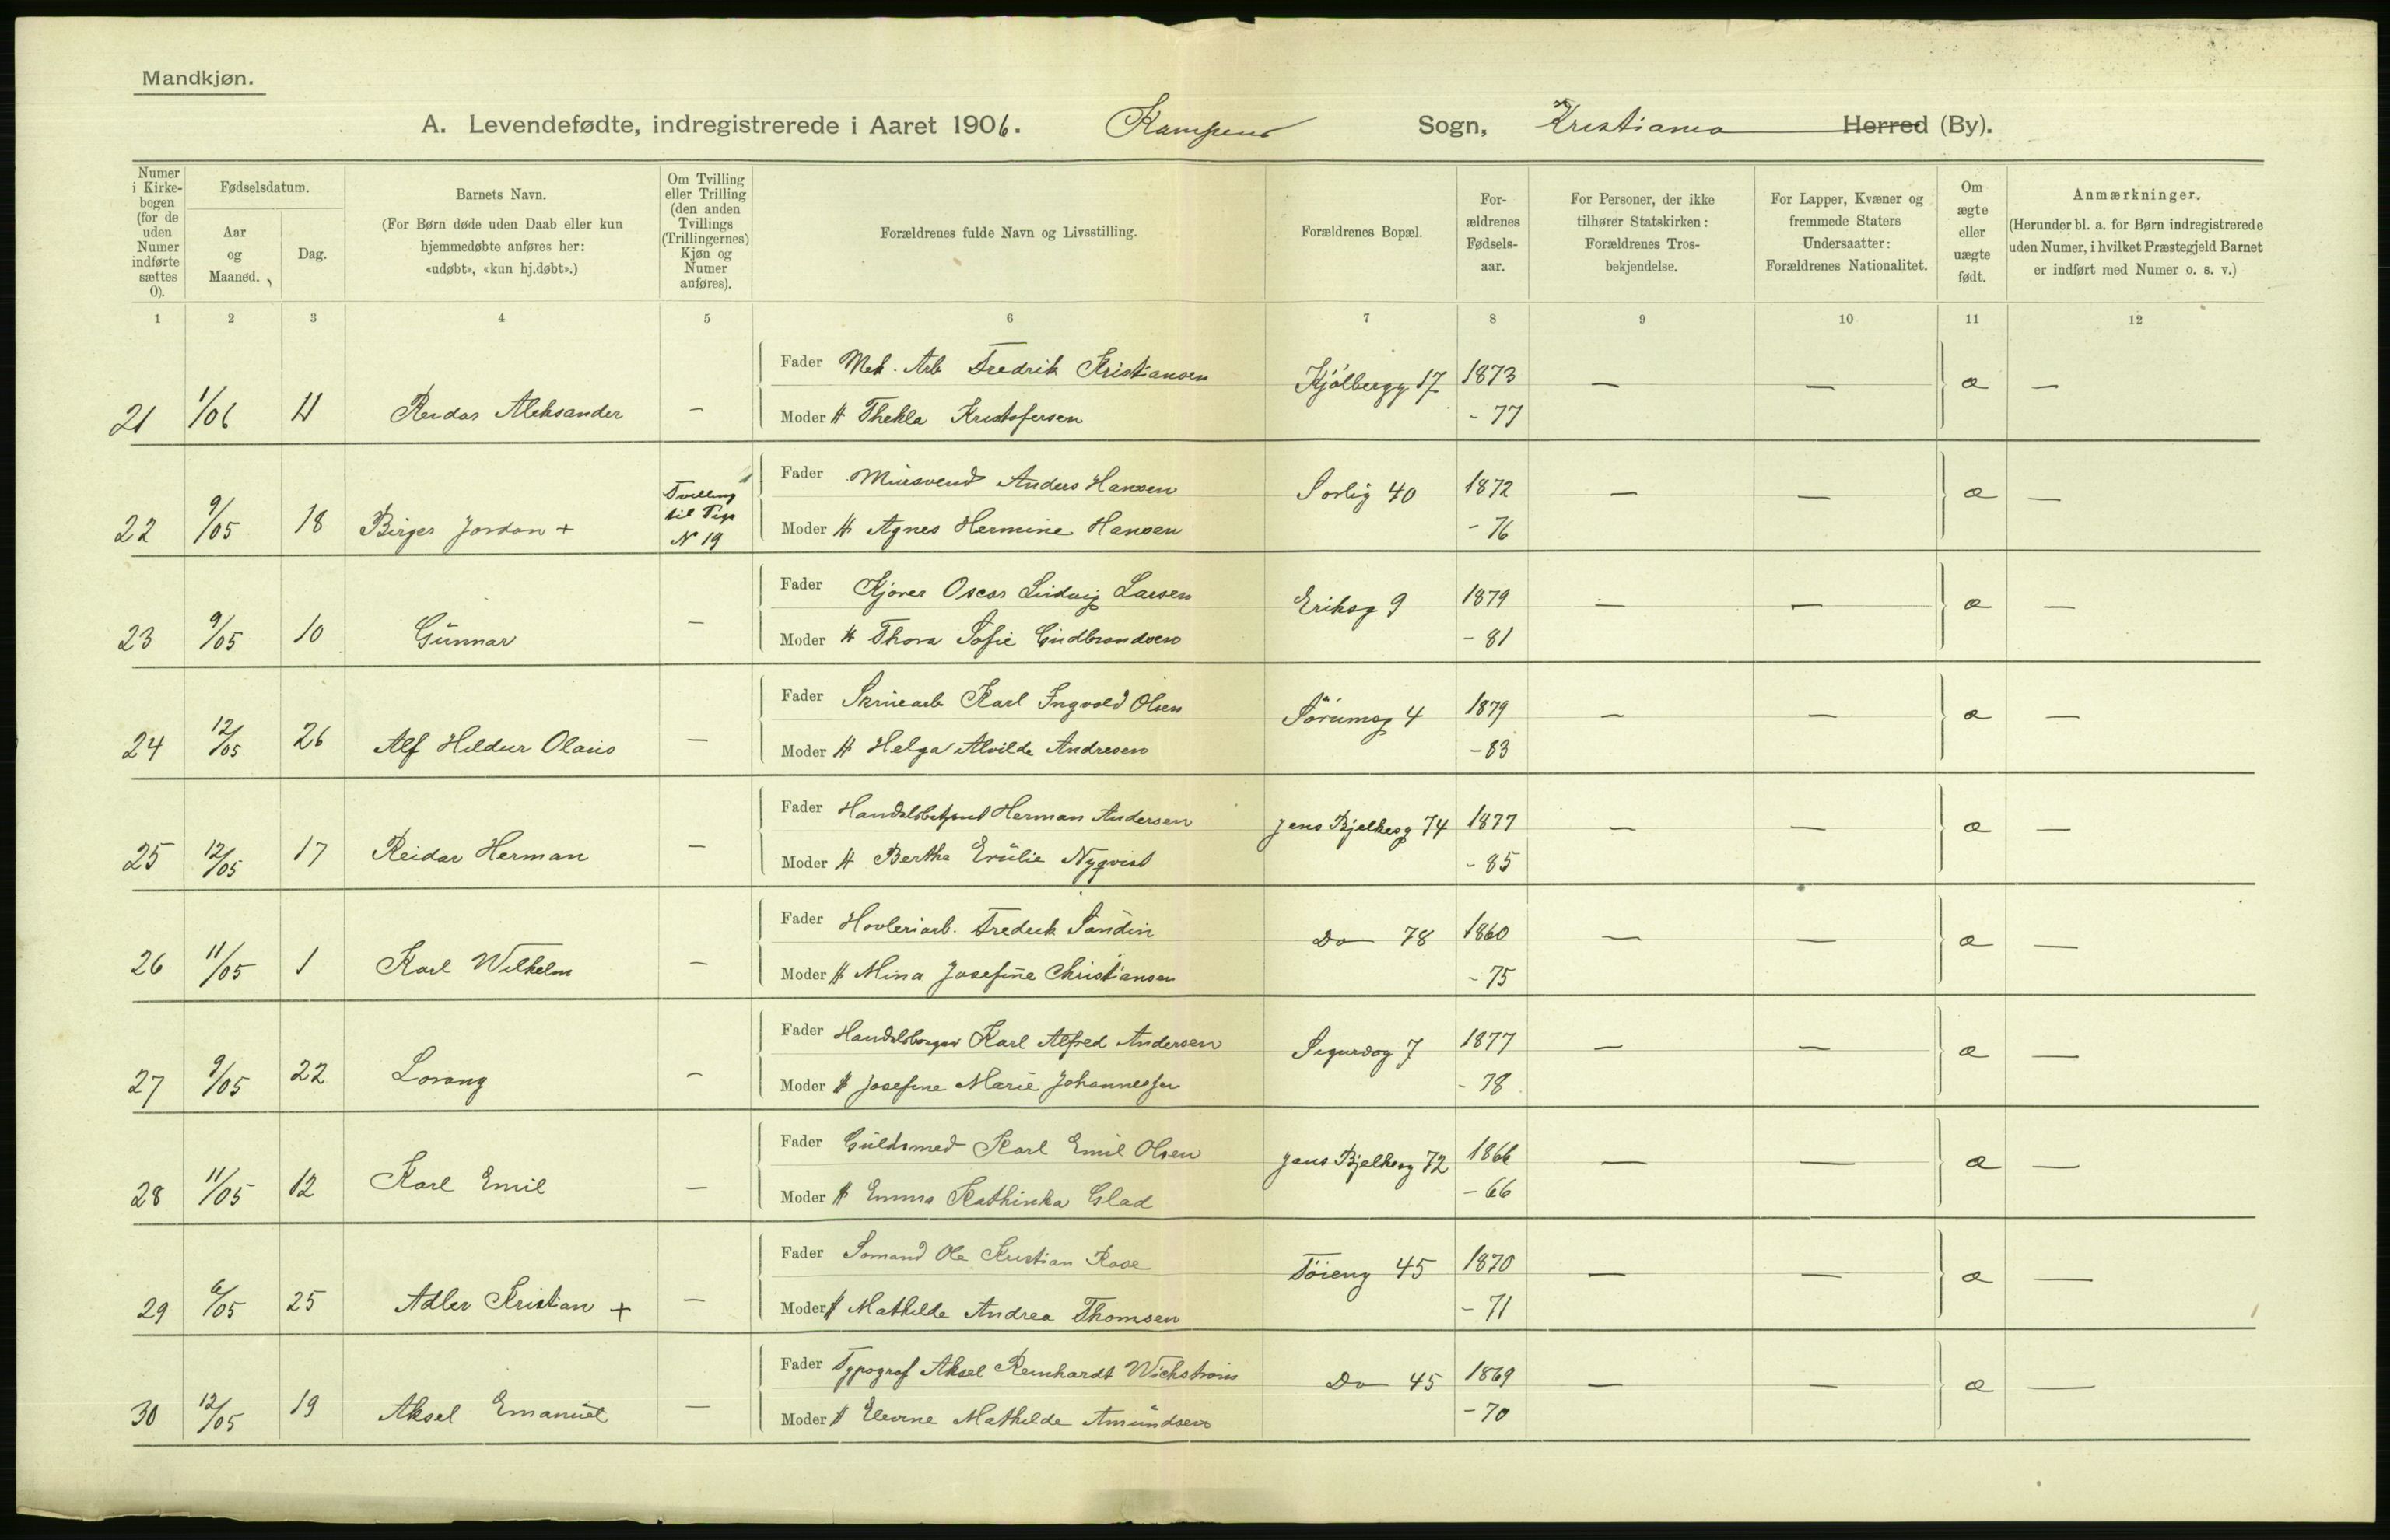 Mandkjøn.
A. Levendefødte, indregistrerede i Aaret 1906. Kampens Sogn, Kristiania Herred (By).
Numer i Kirkebogen (for de uden Numer indførte sættes 0).
Fødselsdatum.
Aar og Maaned.
Dag.
Barnets Navn.
(For Børn døde uden Daab eller kun hjemmedøbte anføres her: «udøbt», «kun hj.døbt».)
Om Tvilling eller Trilling (den anden Tvillings (Trillingernes) Kjøn og Numer anføres).
Forældrenes fulde Navn og Livsstilling.
Forældrenes Bopæl.
Forældrenes Fødselsaar.
For Personer, der ikke tilhører Statskirken: Forældrenes Trosbekjendelse.
For Lapper, Kvæner og fremmede Staters Undersaatter: Forældrenes Nationalitet.
Om ægte eller uægte født.
Anmærkninger.
(Herunder bl. a. for Børn indregistrerede uden Numer, i hvilket Præstegjeld Barnet er indført med Numer o. s. v.)
1 2 3 4 5 6 7 8 9 10 11 12
Fader Mek. Arb Fredrik Kristiansen Kjølbergg 17 1873 — — æ —
21 1/06 11 Reidar Aleksander — Moder H Thekla Kristofersen - 77
Fader Mursvend Anders Hansen Sorlig 40 1872 — — æ —
22 9/05 18 Birger Jordan + Tvilling til Pige N 19 Moder H Agnes Hermine Hansen - 76
Fader Kjører Oscar Ludvig Larsen Eriksg 9 1879 — — æ —
23 9/05 10 Gunnar — Moder H Thora Sofie Gudbrandsen - 81
Fader Skruearb Karl Ingvold Olsen Sørumsg 4 1879 — — æ —
24 12/05 26 Alf Hildur Olaus — Moder H Helga Alvilde Andresen - 83
Fader Handelsbetjent Herman Andersen Jens Bjelkesg 74 1877 — — æ —
25 12/05 17 Reidar Herman — Moder H Berthe Nyqvist - 85
Fader Høvleriarb. Fredrik Sandin Do 78 1860 — — æ —
26 11/05 1 Karl Wilhelm — Moder H Mina Josefine Christiansen - 75
Fader Handelsborger Karl Alfred Andersen Sigurdsg 7 1877 — — æ —
27 9/05 22 Lorang — Moder H Josefine Marie Johannessen - 78
Fader Guldsmed Karl Emil Olsen Jens Bjelkesg 72 1866 — — æ —
28 11/05 12 Karl Emil — Moder H Emma Kathinka Glad - 66
Fader Sømand Ole Kristian Rose Tøieng 45 1870 — — æ —
29 6/05 25 Adler Kristian + — Moder H Mathilde Andrea Thomsen - 71
Fader Typograf Aksel Reinhardt Wickstrøm Do 45 1869 — — æ —
30 12/05 19 Aksel Emanuel — Moder H Elevine Mathilde Amundsen - 70